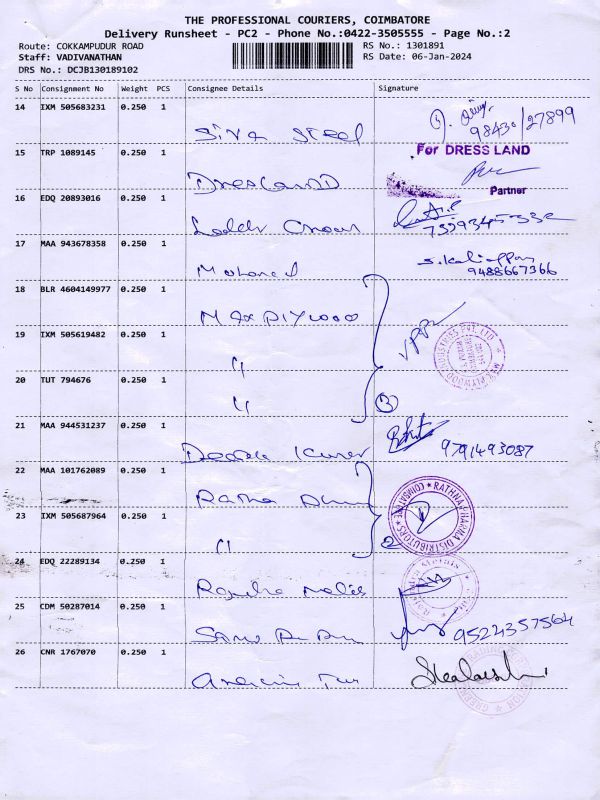 THE PROFESSIONAL COURIERS, COIMBATORE
Delivery Runsheet - PC2 - Phone No.:0422-3505555 - Page No.:2
Route: COKKAMPUDUR ROAD RS No.: 1301891
Staff: VADIVANATHAN RS Date: 06-Jan-2024
DRS No.: DCJB130189102
S No Consignment No Weight PCS Consignee Details Signature
14 IXM 505683231 0.250 1 Siva Steel 98430/27899
15 TRP 1089145 0.250 1 Dresland For DRESS LAND
Partner
16 EDQ 20893016 0.250 1
17 MAA 943678358 0.250 1 Mohaned S. Kaliappan
9488667366
18 BLR 4604149977 0.250 1 Max Plywood
19 IXM 505619482 0.250 1 "
20 TUT 794676 0.250 1 " 3
21 MAA 944531237 0.250 1 9791493087
22 MAA 101762089 0.250 1 Ratna RATHNA PHARMA DISTRIBUTORS
23 IXM 505687964 0.250 1 " 2
24 EDQ 22289134 0.250 1
25 CDM 50287014 0.250 1 9522357564
26 CNR 1767070 0.250 1